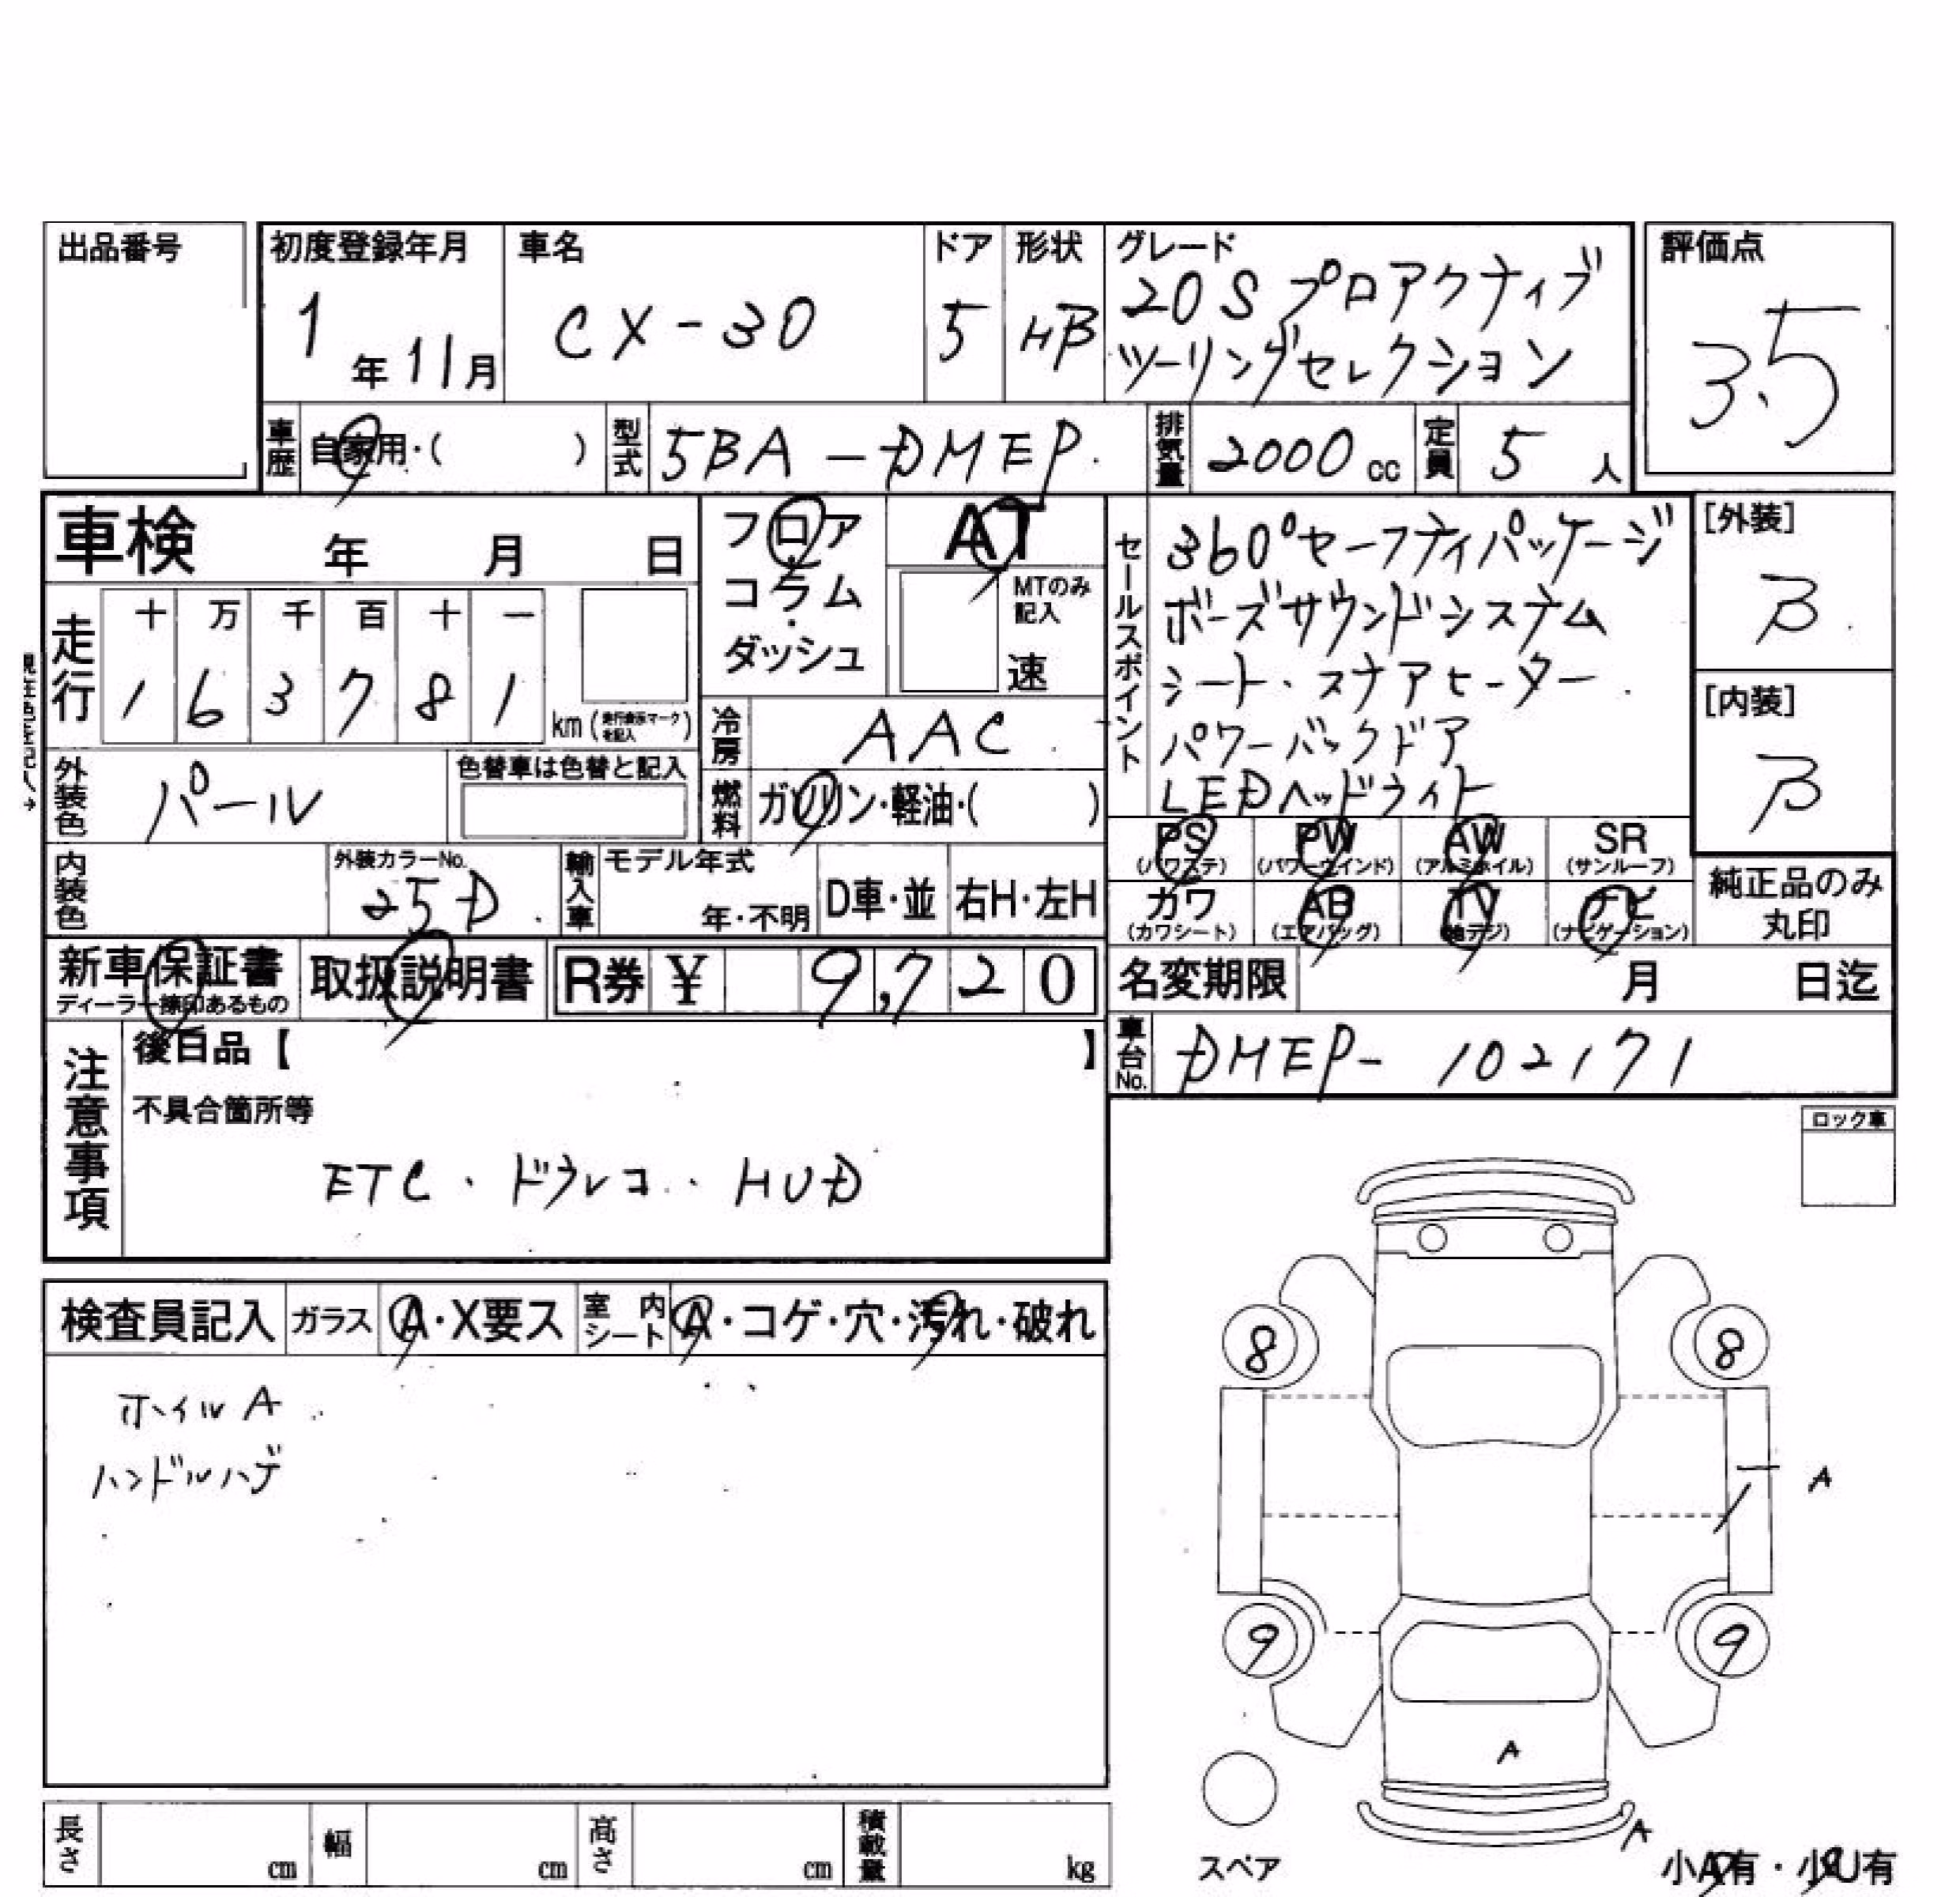 出品番号
初度登録年月
1年11月
車名
CX-30
ドア
5
形状
HB
グレード
20S プロアクティブ
ツーリングセレクション
評価点
3.5
車歴
自家用・( )
型式
5BA-DMEP
排気量
2000cc
定員
5人
車検 年 月 日
フロア
・
コラム
・
ダッシュ
AT
MTのみ
記入
速
セールスポイント
360°セーフティパッケージ
ボーズサウンドシステム
シート・ステアヒーター
パワーバックドア
LEDヘッドライト
[外装]
B
[内装]
B
走行
十 万 千 百 十 一
1 6 3 7 8 1
km(走行表示マークを記入)
冷房
AAC
外装色
パール
色替車は色替と記入
燃料
ガソリン・軽油・( )
内装色
外装カラーNo.
25D
輸入車
モデル年式
年・不明
D車・並
右H・左H
PS
(パワステ)
PW
(パワーウインド)
AW
(アルミホイル)
SR
(サンルーフ)
カワ
(カワシート)
AB
(エアバッグ)
TV
(地デジ)
ナビ
(ナビゲーション)
純正品のみ
丸印
新車保証書
ディーラー捺印あるもの
取扱説明書
R券 ¥ 9,720
名変期限 月 日迄
車台No.
DMEP-102171
注意事項
後日品【 】
不具合箇所等
ETC・ドラレコ・HUD
ロック車
検査員記入
ガラス
A・X要ス
室内シート
A・コゲ・穴・汚れ・破れ
ホイルA
ハンドルハゲ
8
8
A
9
9
A
A
スペア
小A有・小U有
長さ cm
幅 cm
高さ cm
積載量 kg